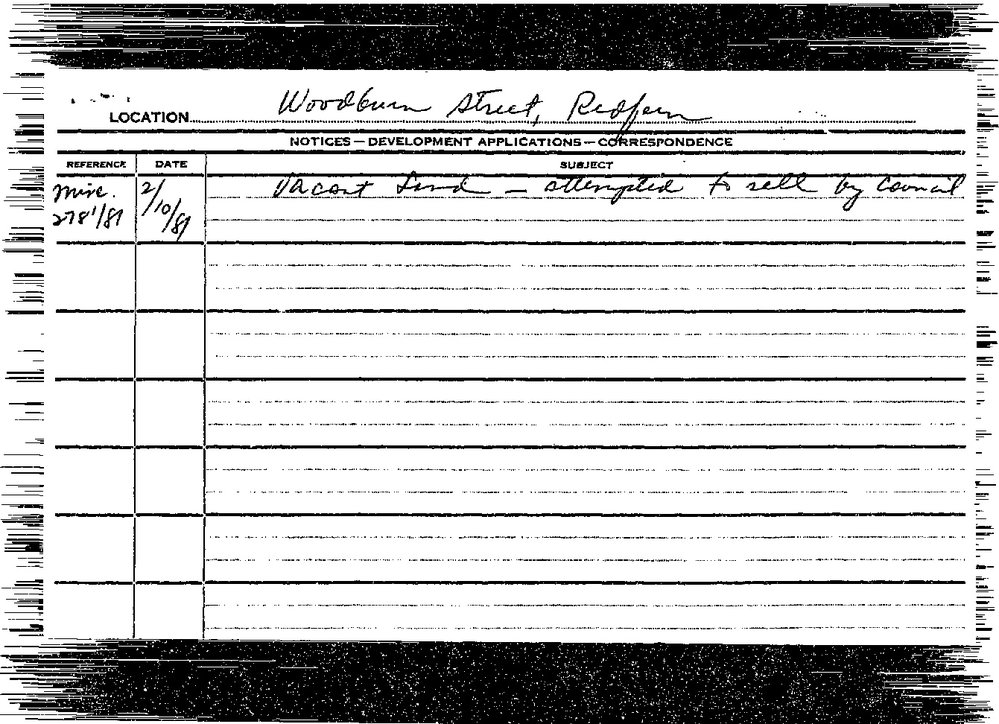 LOCATION Woodburn Street, Redfern
NOTICES — DEVELOPMENT APPLICATIONS — CORRESPONDENCE
REFERENCE DATE SUBJECT
Misc. 2/10/81 Vacant Land — attempted to sell by Council
2781/81